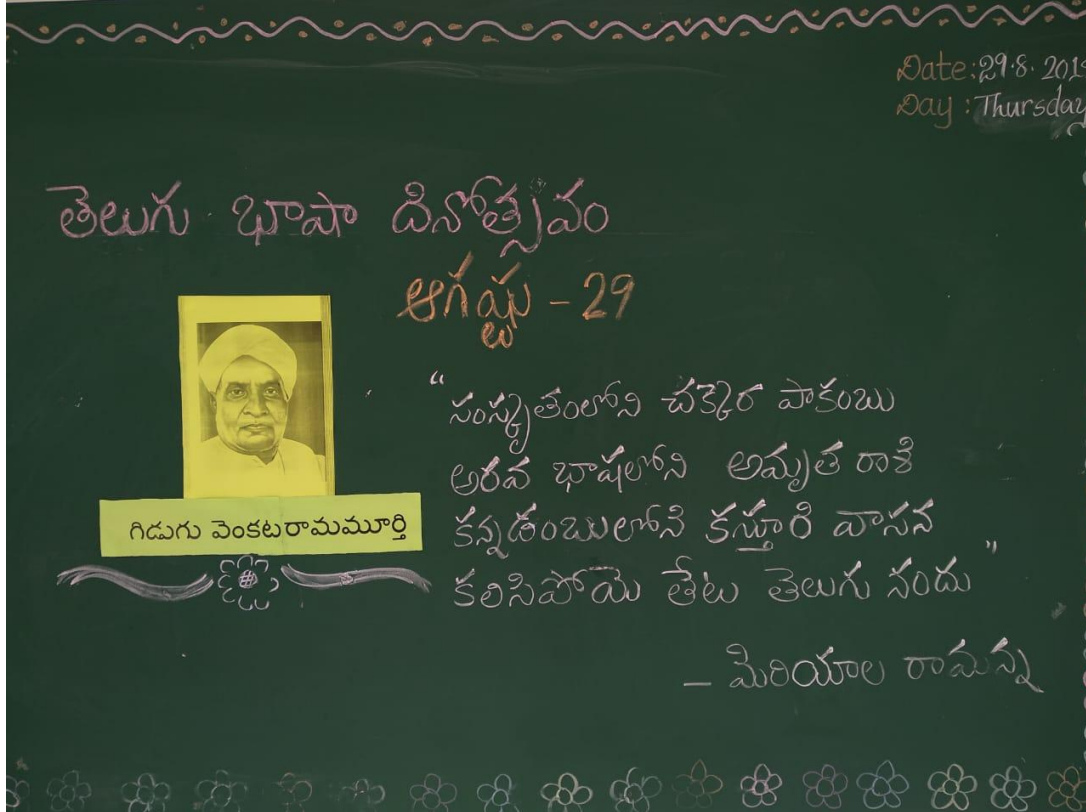 Date: 29.8.2019
Day : Thursday
తెలుగు భాషా దినోత్సవం
ఆగష్టు - 29
గిడుగు వెంకటరామమూర్తి
“సంస్కృతంలోని చక్కెర పాకంబు
అరవ భాషలోని అమృత రాశి
కన్నడంబులోని కస్తూరి వాసన
కలిసిపోయె తేట తెలుగు నందు”
- మిరియాల రామన్న